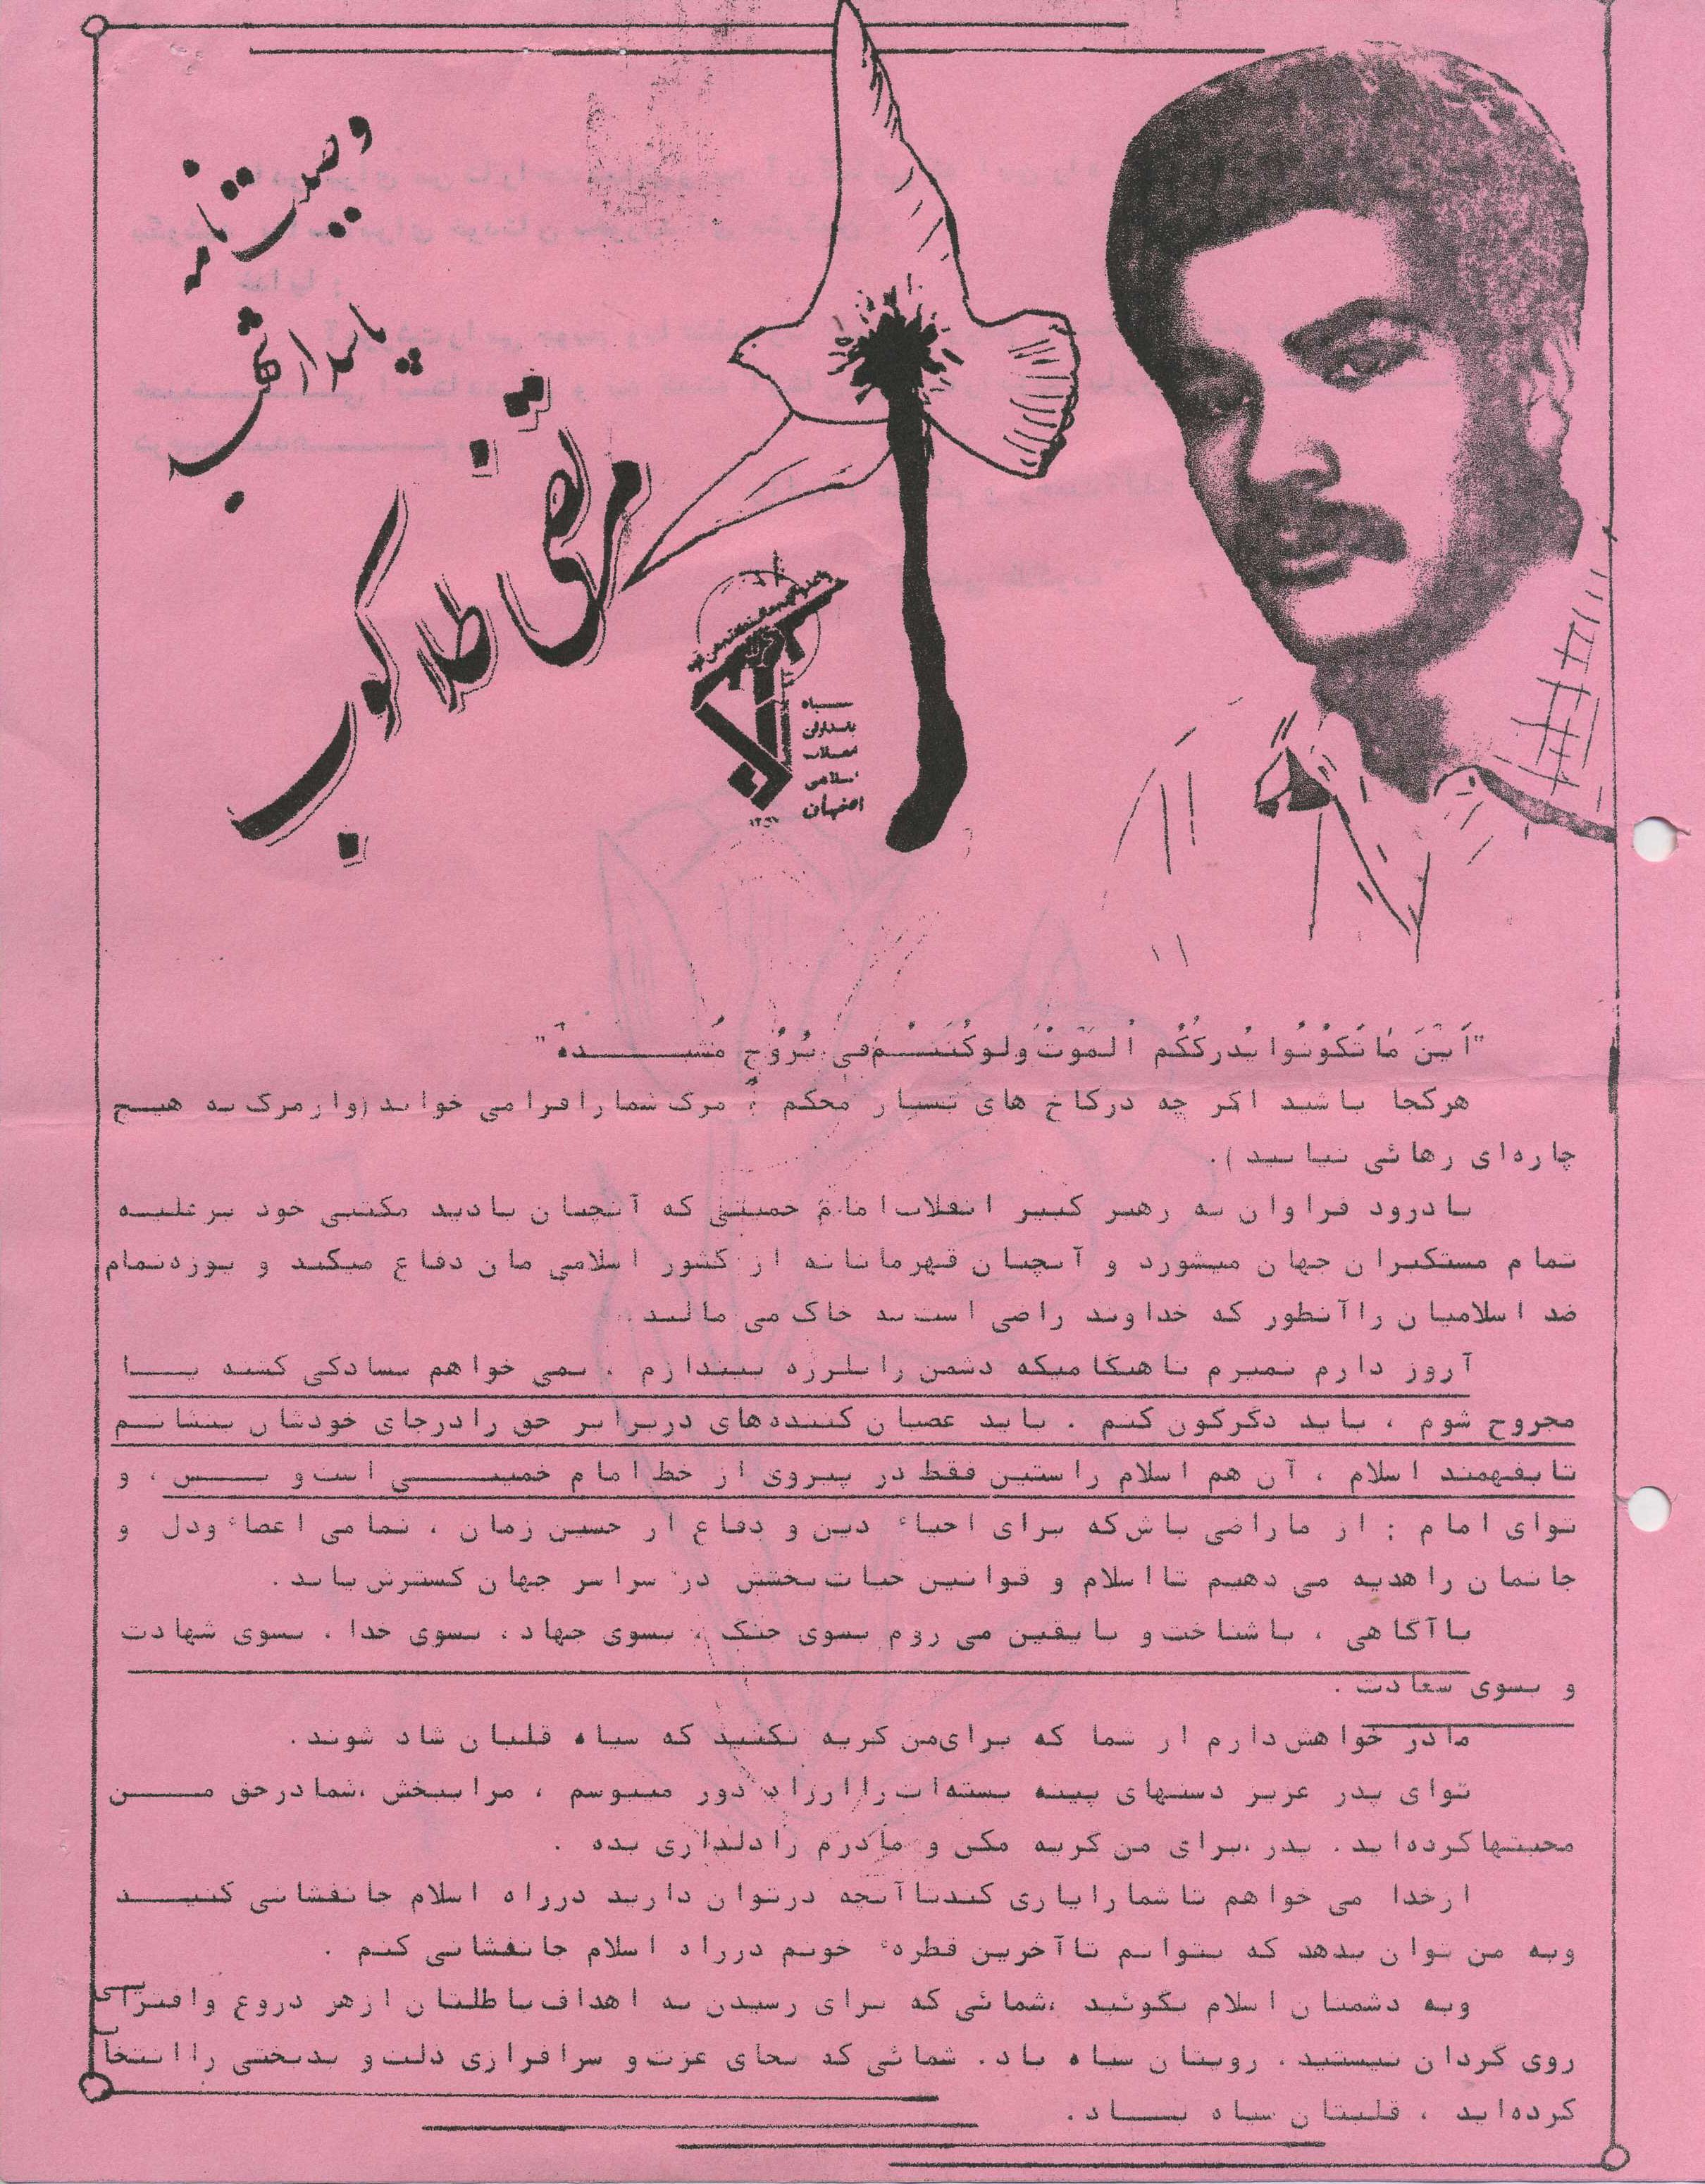 وصیت‌نامه
پاسدار شهید
مرتضی طلاکوب
سپاه
پاسداران
انقلاب
اسلامی
اصفهان
"أَیْنَ مٰا تَکُونُوا یُدرِککُم ُالمَوتُ ولو کُنتُم فی بُرُوجٍ مُشیدهٍ"
هرکجا باشید اگر چه درکاخ های بسیار محکم ، مرگ شمارافرا می خواند (واز مرگ به هیچ
چاره‌ای رهائی نیابید ).
بادرود فراوان به رهبر کبیر انقلاب امام خمینی که آنچنان بادید مکتبی خود برعلیه
تمام مستکبران جهان میشورد و آنچنان قهرمانانه از کشور اسلامی مان دفاع میکند و پوزه‌تمام
ضد اسلامیان راآنطور که خداوند راضی است به خاک می مالند .
آروز دارم نمیرم تاهنگامیکه دشمن رابلرزه بیندازم . نمی خواهم بسادگی کشته یا
مجروح شوم ، باید دگرگون کنم . باید عصیان کننده‌های دربرابر حق رادرجای خودشان بنشانم
تابفهمند اسلام ، آن هم اسلام راستین فقط در پیروی از خط امام خمینی است و بس ، و
توای امام ; از ماراضی باش که برای احیاء دین و دفاع از حسین زمان ، تمامی اعضاء ودل و
جانمان راهدیه می دهیم تااسلام و قوانین حیات‌بخشش در سراسر جهان گسترش یابد .
باآگاهی ، باشناخت و بایقین می روم بسوی جنگ ، بسوی جهاد، بسوی خدا ، بسوی شهادت
و بسوی سعادت .
مادر خواهش دارم از شما که برای‌من گریه نکنید که سیاه قلبان شاد شوند.
توای پدر عزیز دستهای پینه بسته‌ات راازراه دور میبوسم ، مراببخش ،شمادرحق من
محبتهاکرده‌اید. پدر ،برای من گریه مکن و مادرم رادلداری بده .
ازخدا می خواهم تاشمارایاری کندتاآنچه درتوان دارید درراه اسلام جانفشانی کنید
وبه من توان بدهد که بتوانم تاآخرین قطرهٔ خونم درراه اسلام جانفشانی کنم .
وبه دشمنان اسلام بگوئید ،شمائی که برای رسیدن به اهداف باطلتان ازهر دروغ وافترایی
روی گردان نیستید. رویتان سیاه باد. شمائی که بجای عزت و سرافرازی ذلت و بدبختی راانتخاب
کرده‌اید ، قلبتان سیاه باد.